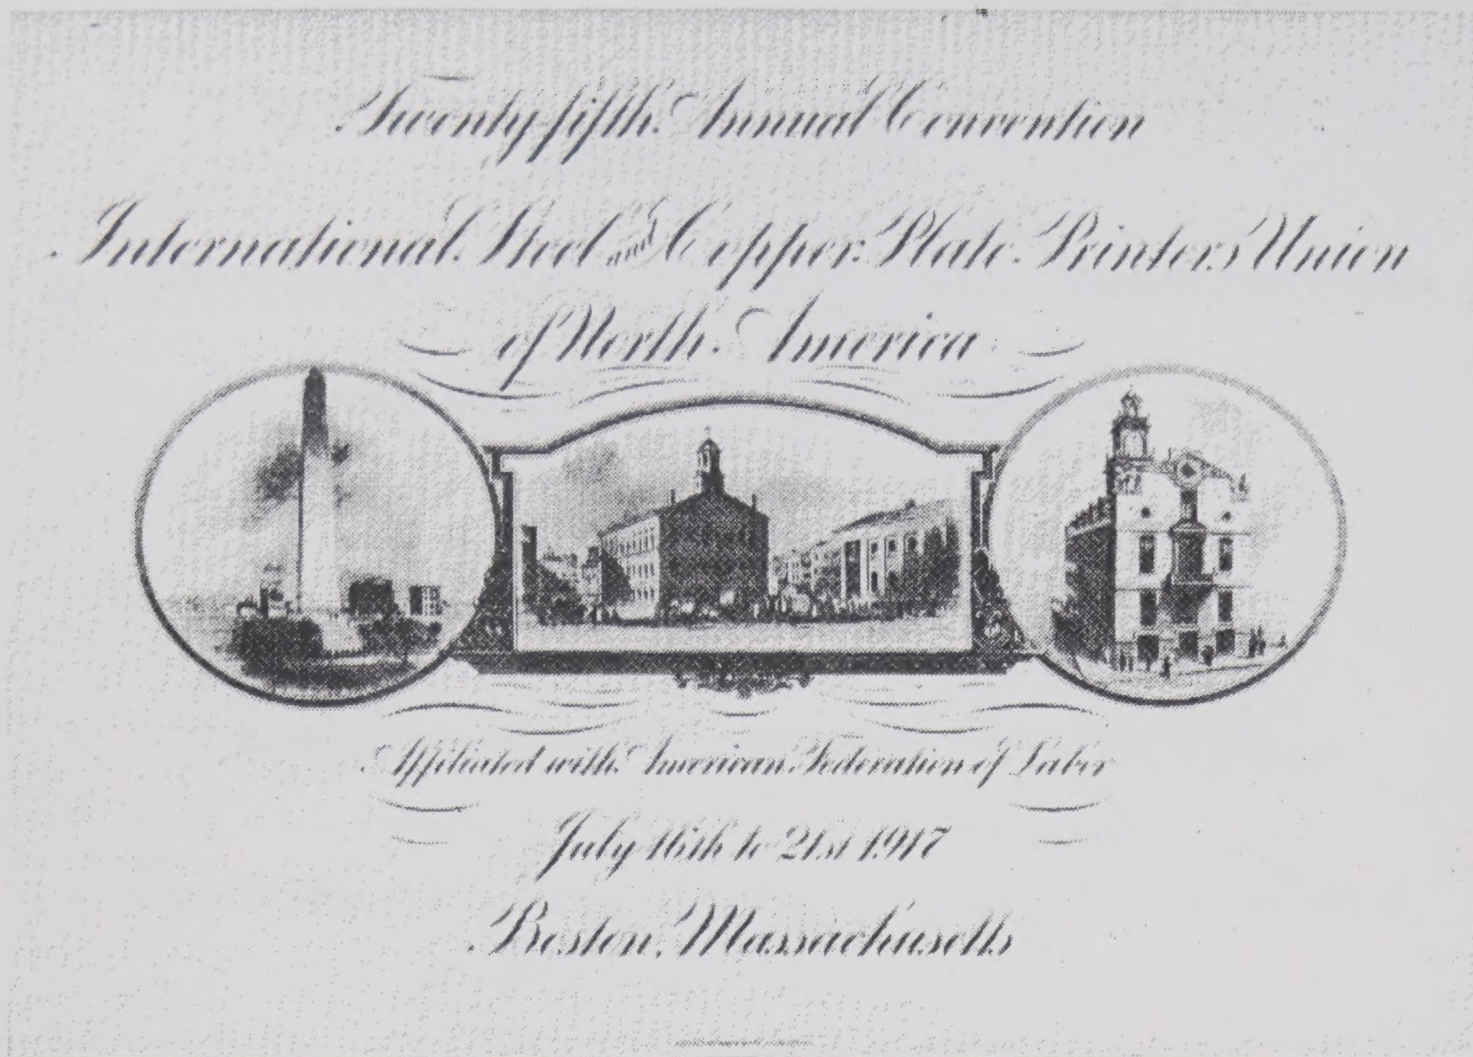 Twenty fifth Annual Convention
International Steel and Copper Plate Printers Union
of North America
Affiliated with American Federation of Labor
July 16th to 21st 1917
Boston, Massachusetts